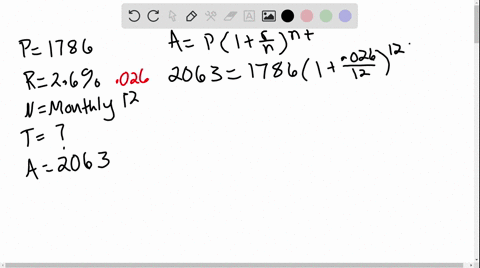 P=1786
R=2.6% .026
N=Monthly 12
T= ?
A=2063
A= P(1+r/n)^nt
2063=1786(1+.026/12)^12·